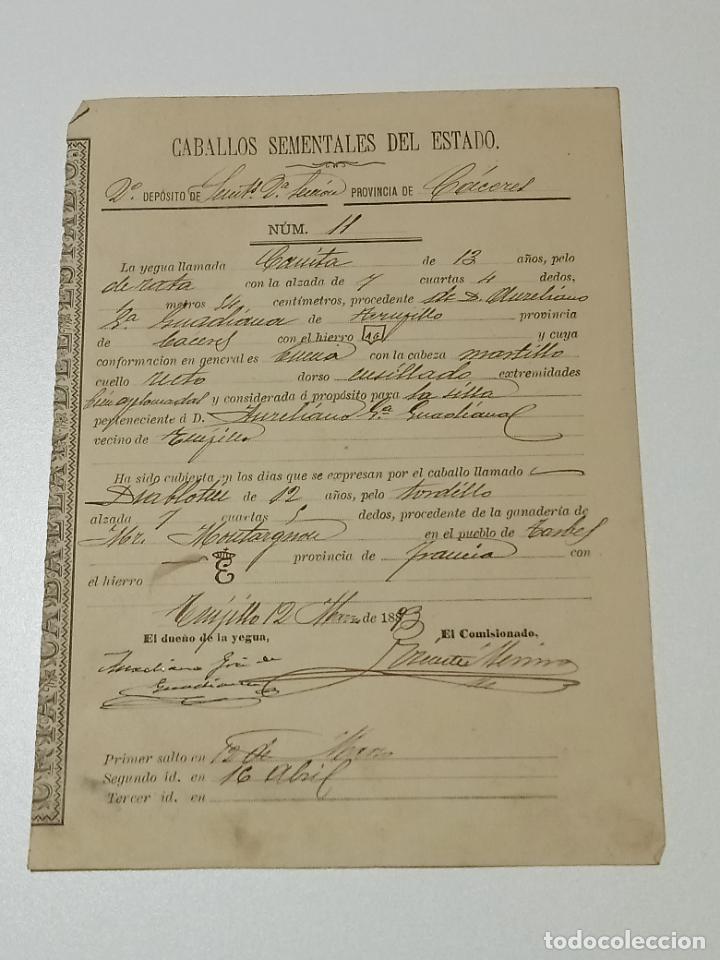 CABALLOS SEMENTALES DEL ESTADO.
2º DEPÓSITO DE Sem.ts 2ª Sección PROVINCIA DE Cáceres
NÚM. 11
La yegua llamada Canita de 13 años, pelo
de rata con la alzada de 7 cuartas 4 dedos,
metros centímetros, procedente de D. Aureliano
Gª Guadiana de Trujillo provincia
de Caceres con el hierro y cuya
conformacion en general es buena con la cabeza martillo
cuello recto dorso ensillado extremidades
bien aplomadas y considerada á propósito para la silla
perteneciente á D. Aureliano Gª Guadiana
vecino de Trujillo
Ha sido cubierta en los dias que se expresan por el caballo llamado
Diablotin de 12 años, pelo tordillo
alzada 7 cuartas 5 dedos, procedente de la ganadería de
Mr. en el pueblo de Tarbes
provincia de francia con
el hierro E
Trujillo 12 Marzo de 1893
El dueño de la yegua, El Comisionado,
Guadiana
Primer salto en 12 de Marzo
Segundo id. en 16 Abril
Tercer id. en
CRIA CABALLAR DEL ESTADO.
todocoleccion
todocoleccion.net